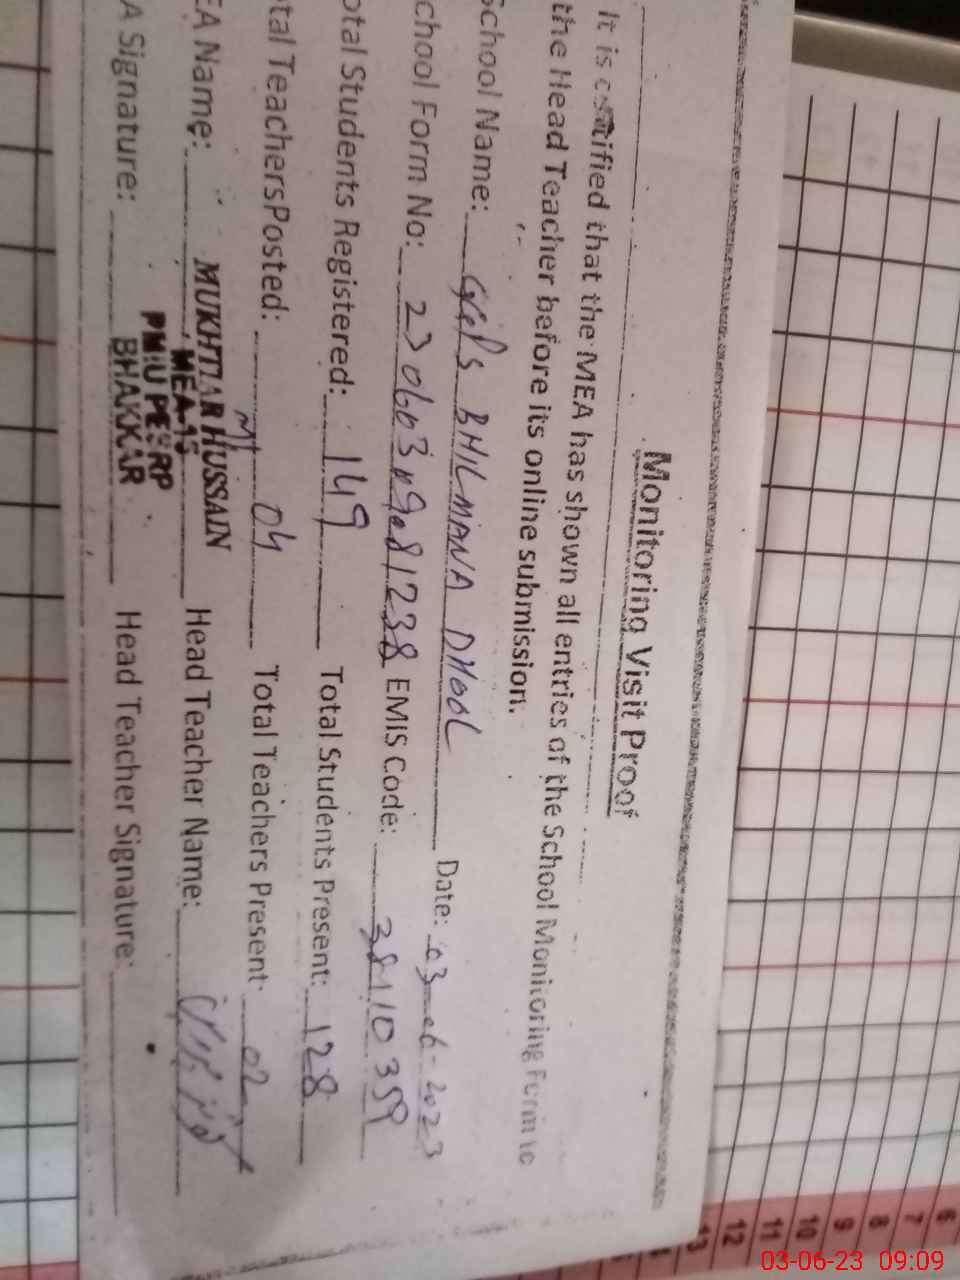 Monitoring Visit Proof
It is certified that the MEA has shown all entries of the School Monitoring Form to
the Head Teacher before its online submission.
School Name: GGPS BHILMANA DHOOL Date: 03-06-2023
chool Form No: 230603 09081238 EMIS Code: 38110359
otal Students Registered: 149 Total Students Present: 128
otal TeachersPosted: 04 Total Teachers Present: 02
EA Name: MUKHTIAR HUSSAIN Head Teacher Name:
MEA-15
A Signature: Head Teacher Signature:
PMIU PESRP
BHAKKAR
13
12
11
10
9
8
7
6
03-06-23 09:09